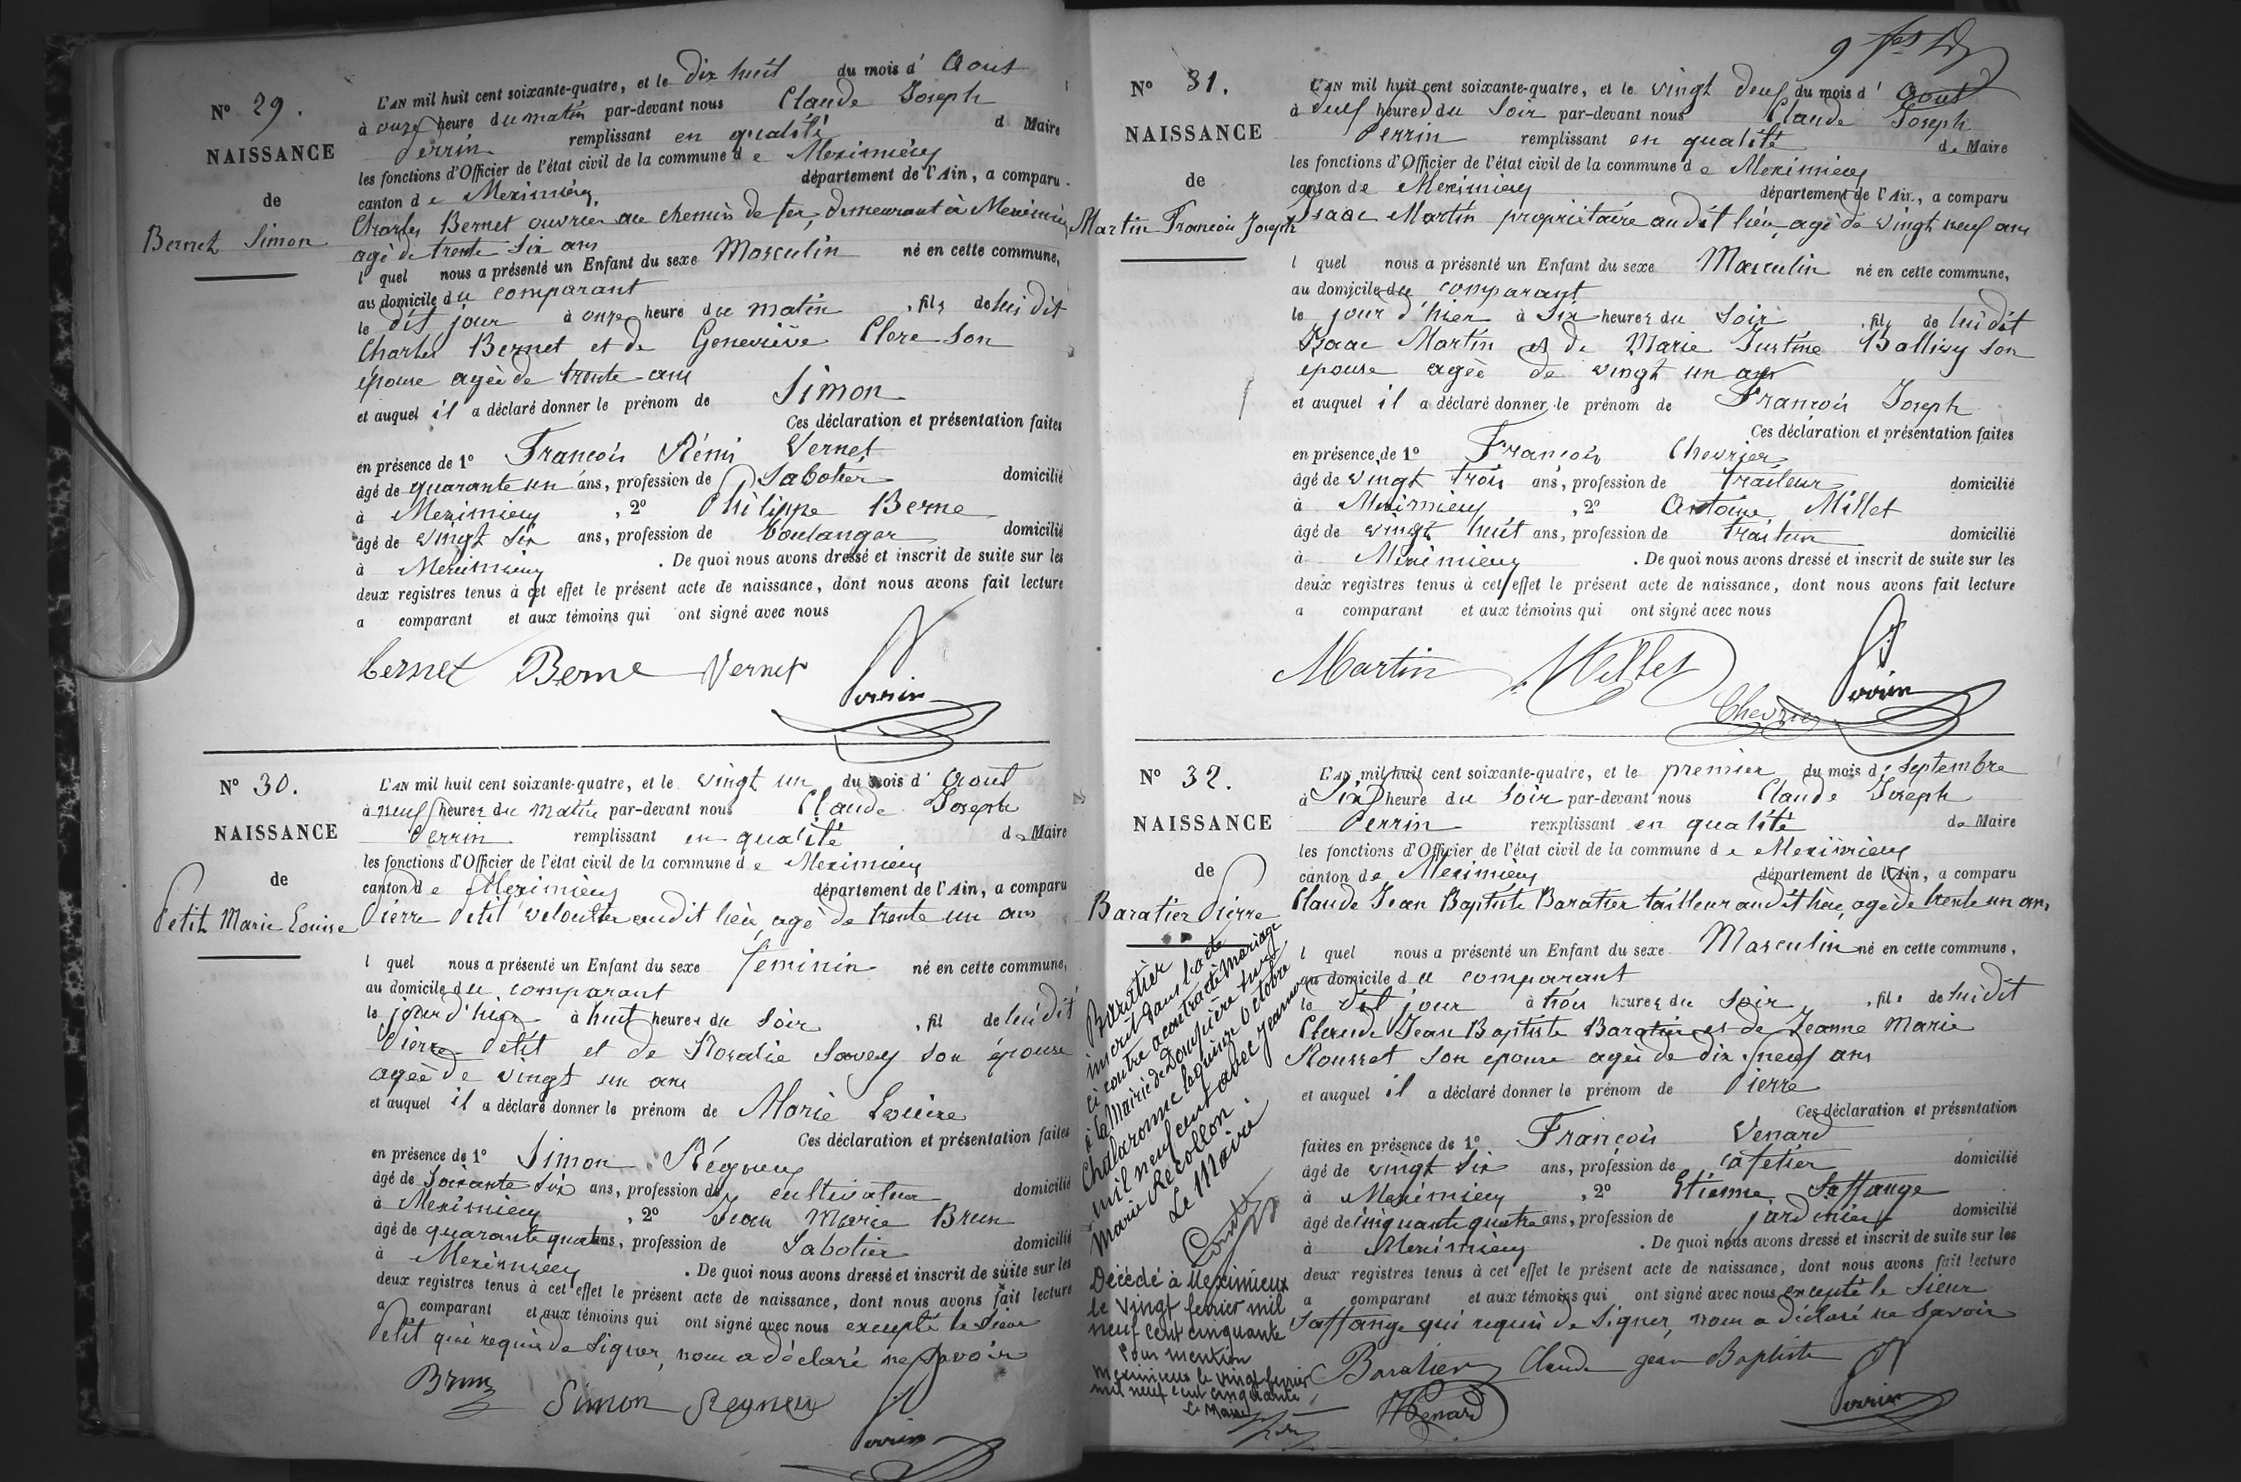 N° 29.
NAISSANCE
de
Bernet Simon
L'AN mil huit cent soixante-quatre, et le dix huit du mois d' Aout
à onze heure du matin par-devant nous Claude Joseph
Perrin remplissant en qualité d Maire
les fonctions d'Officier de l'état civil de la commune de Meximieux
canton de Meximieux département de l'Ain, a comparu
Charles Bernet ouvrier au chemin de fer, demeurant à Meximieux
agé de trente six ans
l quel nous a présenté un Enfant du sexe Masculin né en cette commune,
au domicile du comparant
le dit jour à onze heure du matin, fils de lui dit
Charles Bernet et de Geneviève Clere son
épouse agée de trente ans
et auquel il a déclaré donner le prénom de Simon
Ces déclaration et présentation faites
en présence de 1° François Rémi Vernet
âgé de quarante un ans, profession de Sabotier domicilié
à Meximieux, 2° Philippe Berne
âgé de vingt six ans, profession de boulanger domicilié
à Meximieux. De quoi nous avons dressé et inscrit de suite sur les
deux registres tenus à cet effet le présent acte de naissance, dont nous avons fait lecture
a comparant et aux témoins qui ont signé avec nous
Bernet Berne Vernet
Perrin
N° 30.
NAISSANCE
de
Petit Marie Louise
L'AN mil huit cent soixante-quatre, et le vingt un du mois d' Aout
à neuf heures du matin par-devant nous Claude Joseph
Perrin remplissant en qualité de Maire
les fonctions d'Officier de l'état civil de la commune de Meximieux
canton de Meximieux département de l'Ain, a comparu
Pierre Petit veloutier audit lieu, agé de trente un ans
l quel nous a présenté un Enfant du sexe feminin né en cette commune,
au domicile du comparant
le jour d'hier à huit heures du soir, fil de lui dit
Pierre Petit et de Rosalie Savey son épouse
agée de vingt un ans
et auquel il a déclaré donner le prénom de Marie Louise
Ces déclaration et présentation faites
en présence de 1° Simon Régneux
âgé de soixante six ans, profession de cultivateur domicilié
à Meximieux, 2° Jean Marie Brun
âgé de quarante quatre ans, profession de Sabotier domicilié
à Meximieux. De quoi nous avons dressé et inscrit de suite sur les
deux registres tenus à cet effet le présent acte de naissance, dont nous avons fait lecture
a comparant et aux témoins qui ont signé avec nous excepté le Sieur
Petit qui requis de signer, nous a déclaré ne savoir
Brun
Simon Regneux
Perrin
N° 31.
NAISSANCE
de
Martin François Joseph
L'AN mil huit cent soixante-quatre, et le vingt deux du mois d' Aout
à deux heures du soir par-devant nous Claude Joseph
Perrin remplissant en qualité de Maire
les fonctions d'Officier de l'état civil de la commune de Meximieux
canton de Meximieux département de l'Ain, a comparu
Isaac Martin propriétaire audit lieu, agé de vingt neuf ans
l quel nous a présenté un Enfant du sexe Masculin né en cette commune,
au domicile du comparant
le jour d'hier à six heures du soir, fils de lui dit
Isaac Martin et de Marie Justine Ballivy son
epouse agée de vingt un ans
et auquel il a déclaré donner le prénom de François Joseph
Ces déclaration et présentation faites
en présence de 1° François Chevrier
âgé de vingt trois ans, profession de traiteur domicilié
à Meximieux, 2° Antoine Millet
âgé de vingt huit ans, profession de traiteur domicilié
à Meximieux. De quoi nous avons dressé et inscrit de suite sur les
deux registres tenus à cet effet le présent acte de naissance, dont nous avons fait lecture
a comparant et aux témoins qui ont signé avec nous
Martin Millet
Chevrier Perrin
N° 32.
NAISSANCE
de
Baratier Pierre
Baratier
inscrit dans l'acte
ci contre a contracté mariage
à la Mairie de Dompierre sur
Chalaronne le quinze octobre
mil neuf cent avec Jeanne
Marie Récollon.
Le Maire
Décédé à Meximieux
le vingt fevrier mil
neuf cent cinquante
Pour mention
Meximieux le vingt fevrier
mil neuf cent cinquante
Le Maire
L'AN mil huit cent soixante-quatre, et le premier du mois de Septembre
à six heure du soir par-devant nous Claude Joseph
Perrin remplissant en qualité de Maire
les fonctions d'Officier de l'état civil de la commune de Meximieux
canton de Meximieux département de l'Ain, a comparu
Claude Jean Baptiste Baratier tailleur audit lieu, agé de trente un ans
l quel nous a présenté un Enfant du sexe Masculin né en cette commune,
au domicile du comparant
le dit jour à trois heures du soir, fils de lui dit
Claude Jean Baptiste Baratier et de Jeanne Marie
Rousset son epouse agée de dix neuf ans
et auquel il a déclaré donner le prénom de Pierre
Ces déclaration et présentation
faites en présence de 1° François Venard
âgé de vingt six ans, profession de cafetier domicilié
à Meximieux, 2° Etienne Saffange
âgé de cinquante quatre ans, profession de jardinier domicilié
à Meximieux. De quoi nous avons dressé et inscrit de suite sur les
deux registres tenus à cet effet le présent acte de naissance, dont nous avons fait lecture
a comparant et aux témoins qui ont signé avec nous excepté le Sieur
Saffange qui requis de signer, nous a déclaré ne savoir
Baratier Claude jean Baptiste
Venard
Perrin